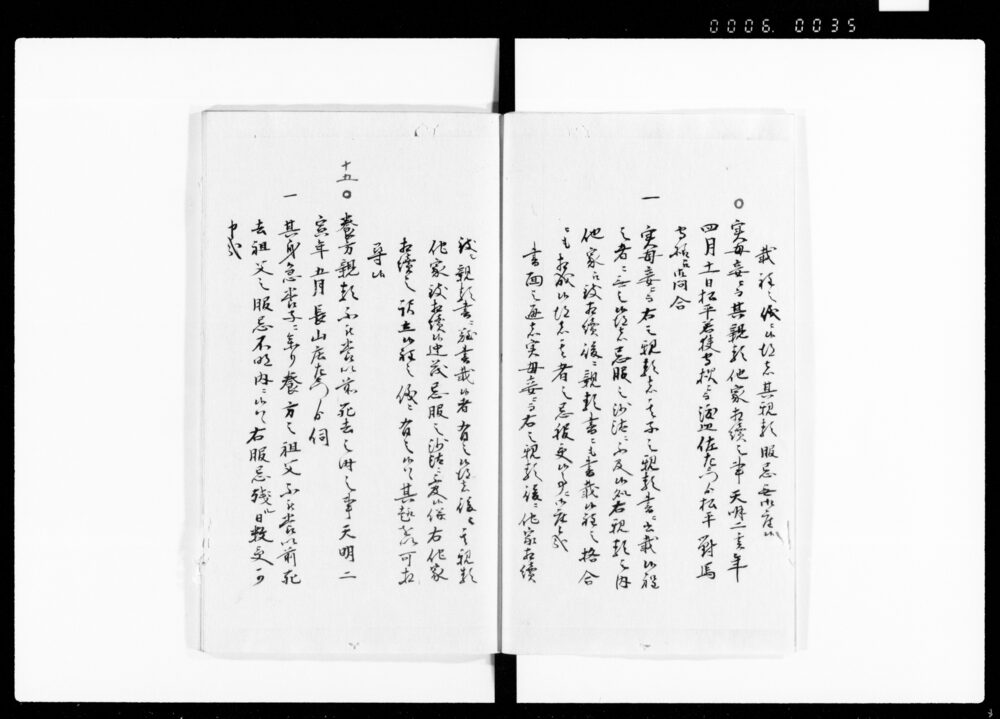 0006. 0035
載程之儀ニ候得者其親類服忌無御座候
○実母妾ニ而其親類他家相続之事 天明二寅年
四月十一日松平若狭守技ニ而渡辺佐左衛門ゟ松平對馬
守招ニ問合
一 実母妾ニ而右之親類者其子之親類書ニ書載候程
之者ニ無之候得者忌服之沙汰ニ不及候処右親類之内
他家江致相続後ニ親類書ニも書載候程之格合
ニも相成候得者其者之忌服受候事ニ御座候哉
書面之通者実母妾ニ而右之親類後ニ他家相続
致親類書ニ致書載候者有之候得者後々其親類
他家致相続候迚茂忌服之沙汰ニ不及候併右他家
相続之訳立候程之儀ニ有之候ハヽ其趣を以可相
尋候
十五
○養方親類不相成以前死去之節之事 天明二
寅年五月長山庄左衛門ゟ伺
一 其身急養子ニ参り養方之祖父不相成以前死
去祖父之服忌不明内ニ候ハヽ右服忌残ル日数受可
申哉